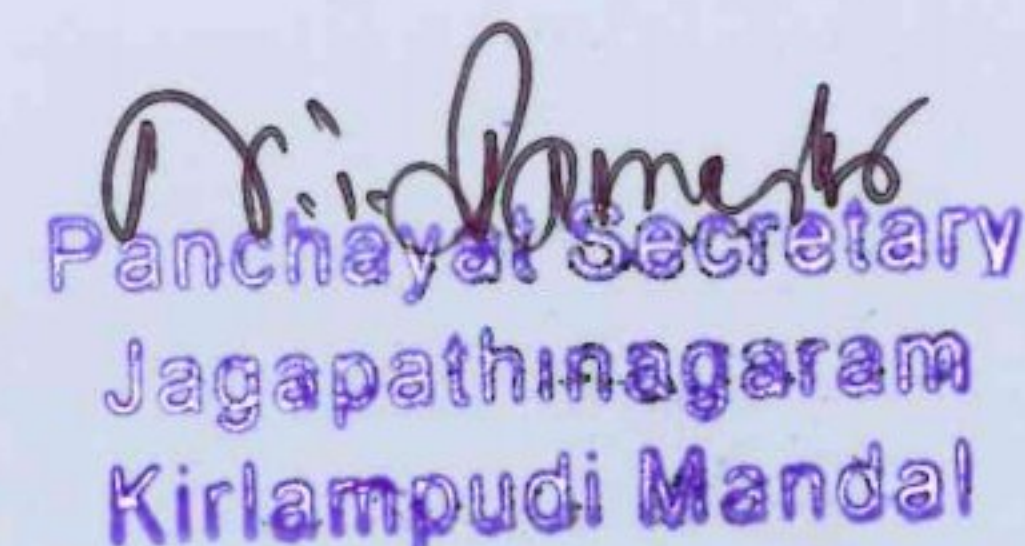 Panchayat Secretary
Jagapathinagaram
Kirlampudi Mandal